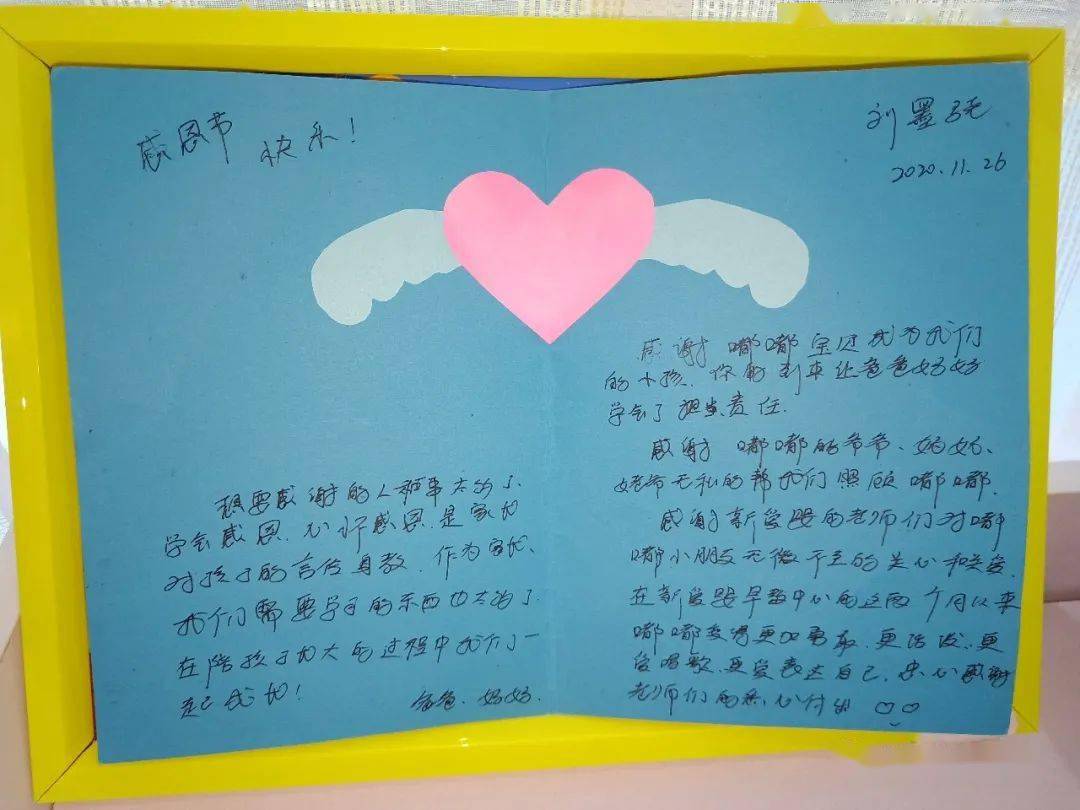 感恩节
快乐！
刘墨
2020.11.26
感谢 嘟嘟宝贝成为我们
的小孩，你的到来让爸爸妈妈
学会了担当责任.
感谢 嘟嘟的爷爷、妈妈、
姥爷无私的帮我们照顾嘟嘟.
感谢新爱婴的老师们对嘟
嘟小朋友无微不至的关心和关爱.
在新爱婴早教中心的这两个月以来
嘟嘟变得更加勇敢.更活泼.更
爱唱歌.更爱表达自己.衷心感谢
老师们的悉心付出
想要感谢的人和事太多了.
学会感恩.心怀感恩.是家长
对孩子的言传身教.作为家长、
我们需要学习的东西也太多了.
在陪孩子长大的过程中我们一
起成长！
爸爸.妈妈.